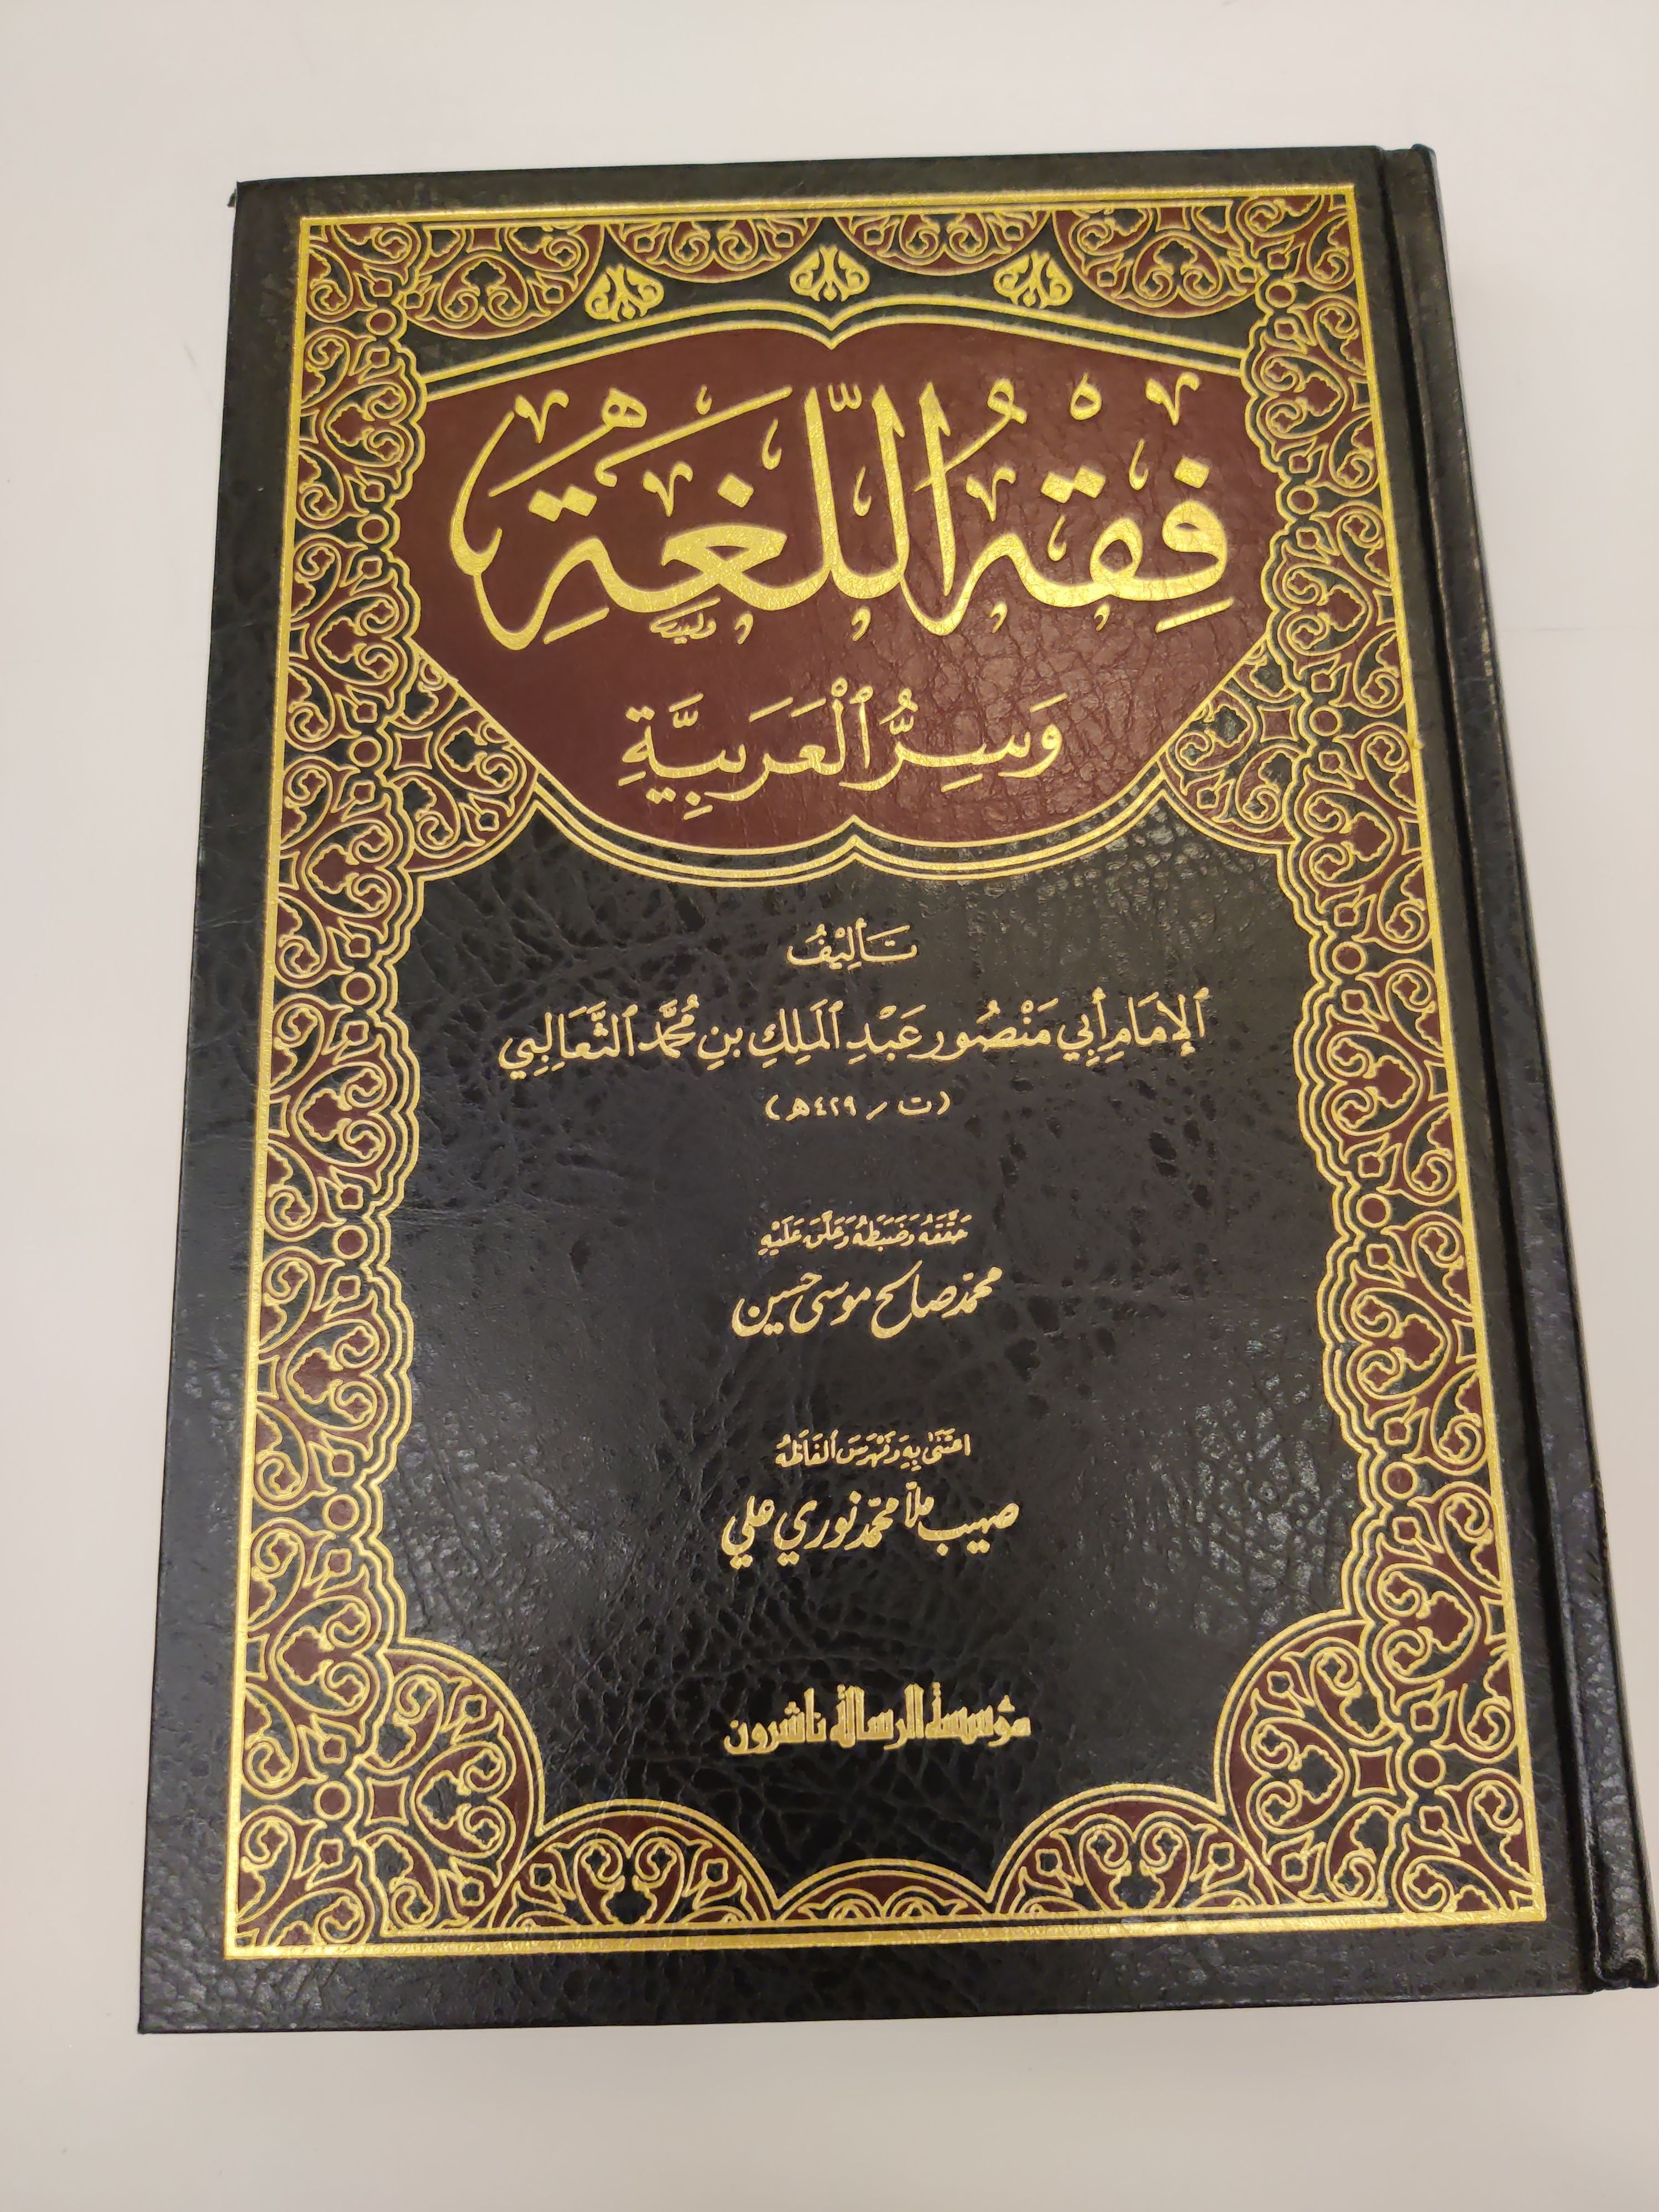 فِقْهُ اللُّغَةِ
وَسِرُّ ٱلْعَرَبِيَّةِ
تَأْلِيْفُ
ٱلإِمَامِ أَبِي مَنْصُور عَبْدِ ٱلمَلِكِ بنِ مُحَمَّد ٱلثَّعَالِبِي
(ت / ٤٢٩هـ)
حَقَّقَهُ وَضَبَطَهُ وَعَلَّقَ عَلَيْهِ
محمّد صالح موسى حسين
اعتَنَىٰ بِهِ وَفَهْرَسَ أَلفَاظَهُ
صهيب ملّا محمّد نوري علي
مؤسسة الرسالة ناشرون